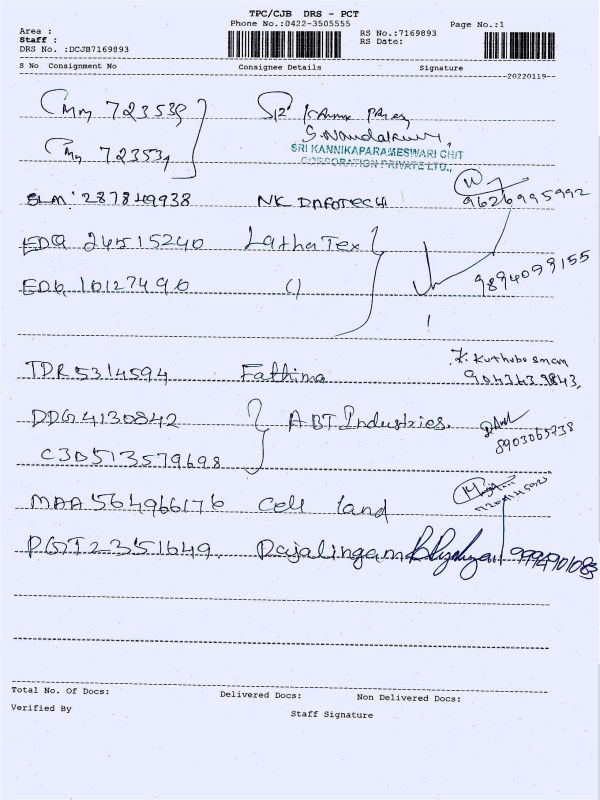 TPC/CJB DRS - PCT
Phone No.:0422-3505555 Page No.:1
Area :
Staff :
DRS No. :DCJB7169893
RS No.:7169893
RS Date:
S No Consignment No Consignee Details Signature
20220119
723539
S. Nandakumar
723534
SRI KANNIKAPARAMESWARI CHIT
CORPORATION PRIVATE LTD.,
SLM 287849938 NK INFOTECH 9626995992
EDQ 24515240 Latha Tex
9894099155
EDQ 10127490 ()
K. Kuthubosman
TDR 5314594 Fathima
DDG 4130842 ABT Industries.
8903065738
C3D513579698
MAA 564966176 Cell land
PGT2351649 Rajalingam 9994901083
Total No. Of Docs: Delivered Docs: Non Delivered Docs:
Verified By
Staff Signature